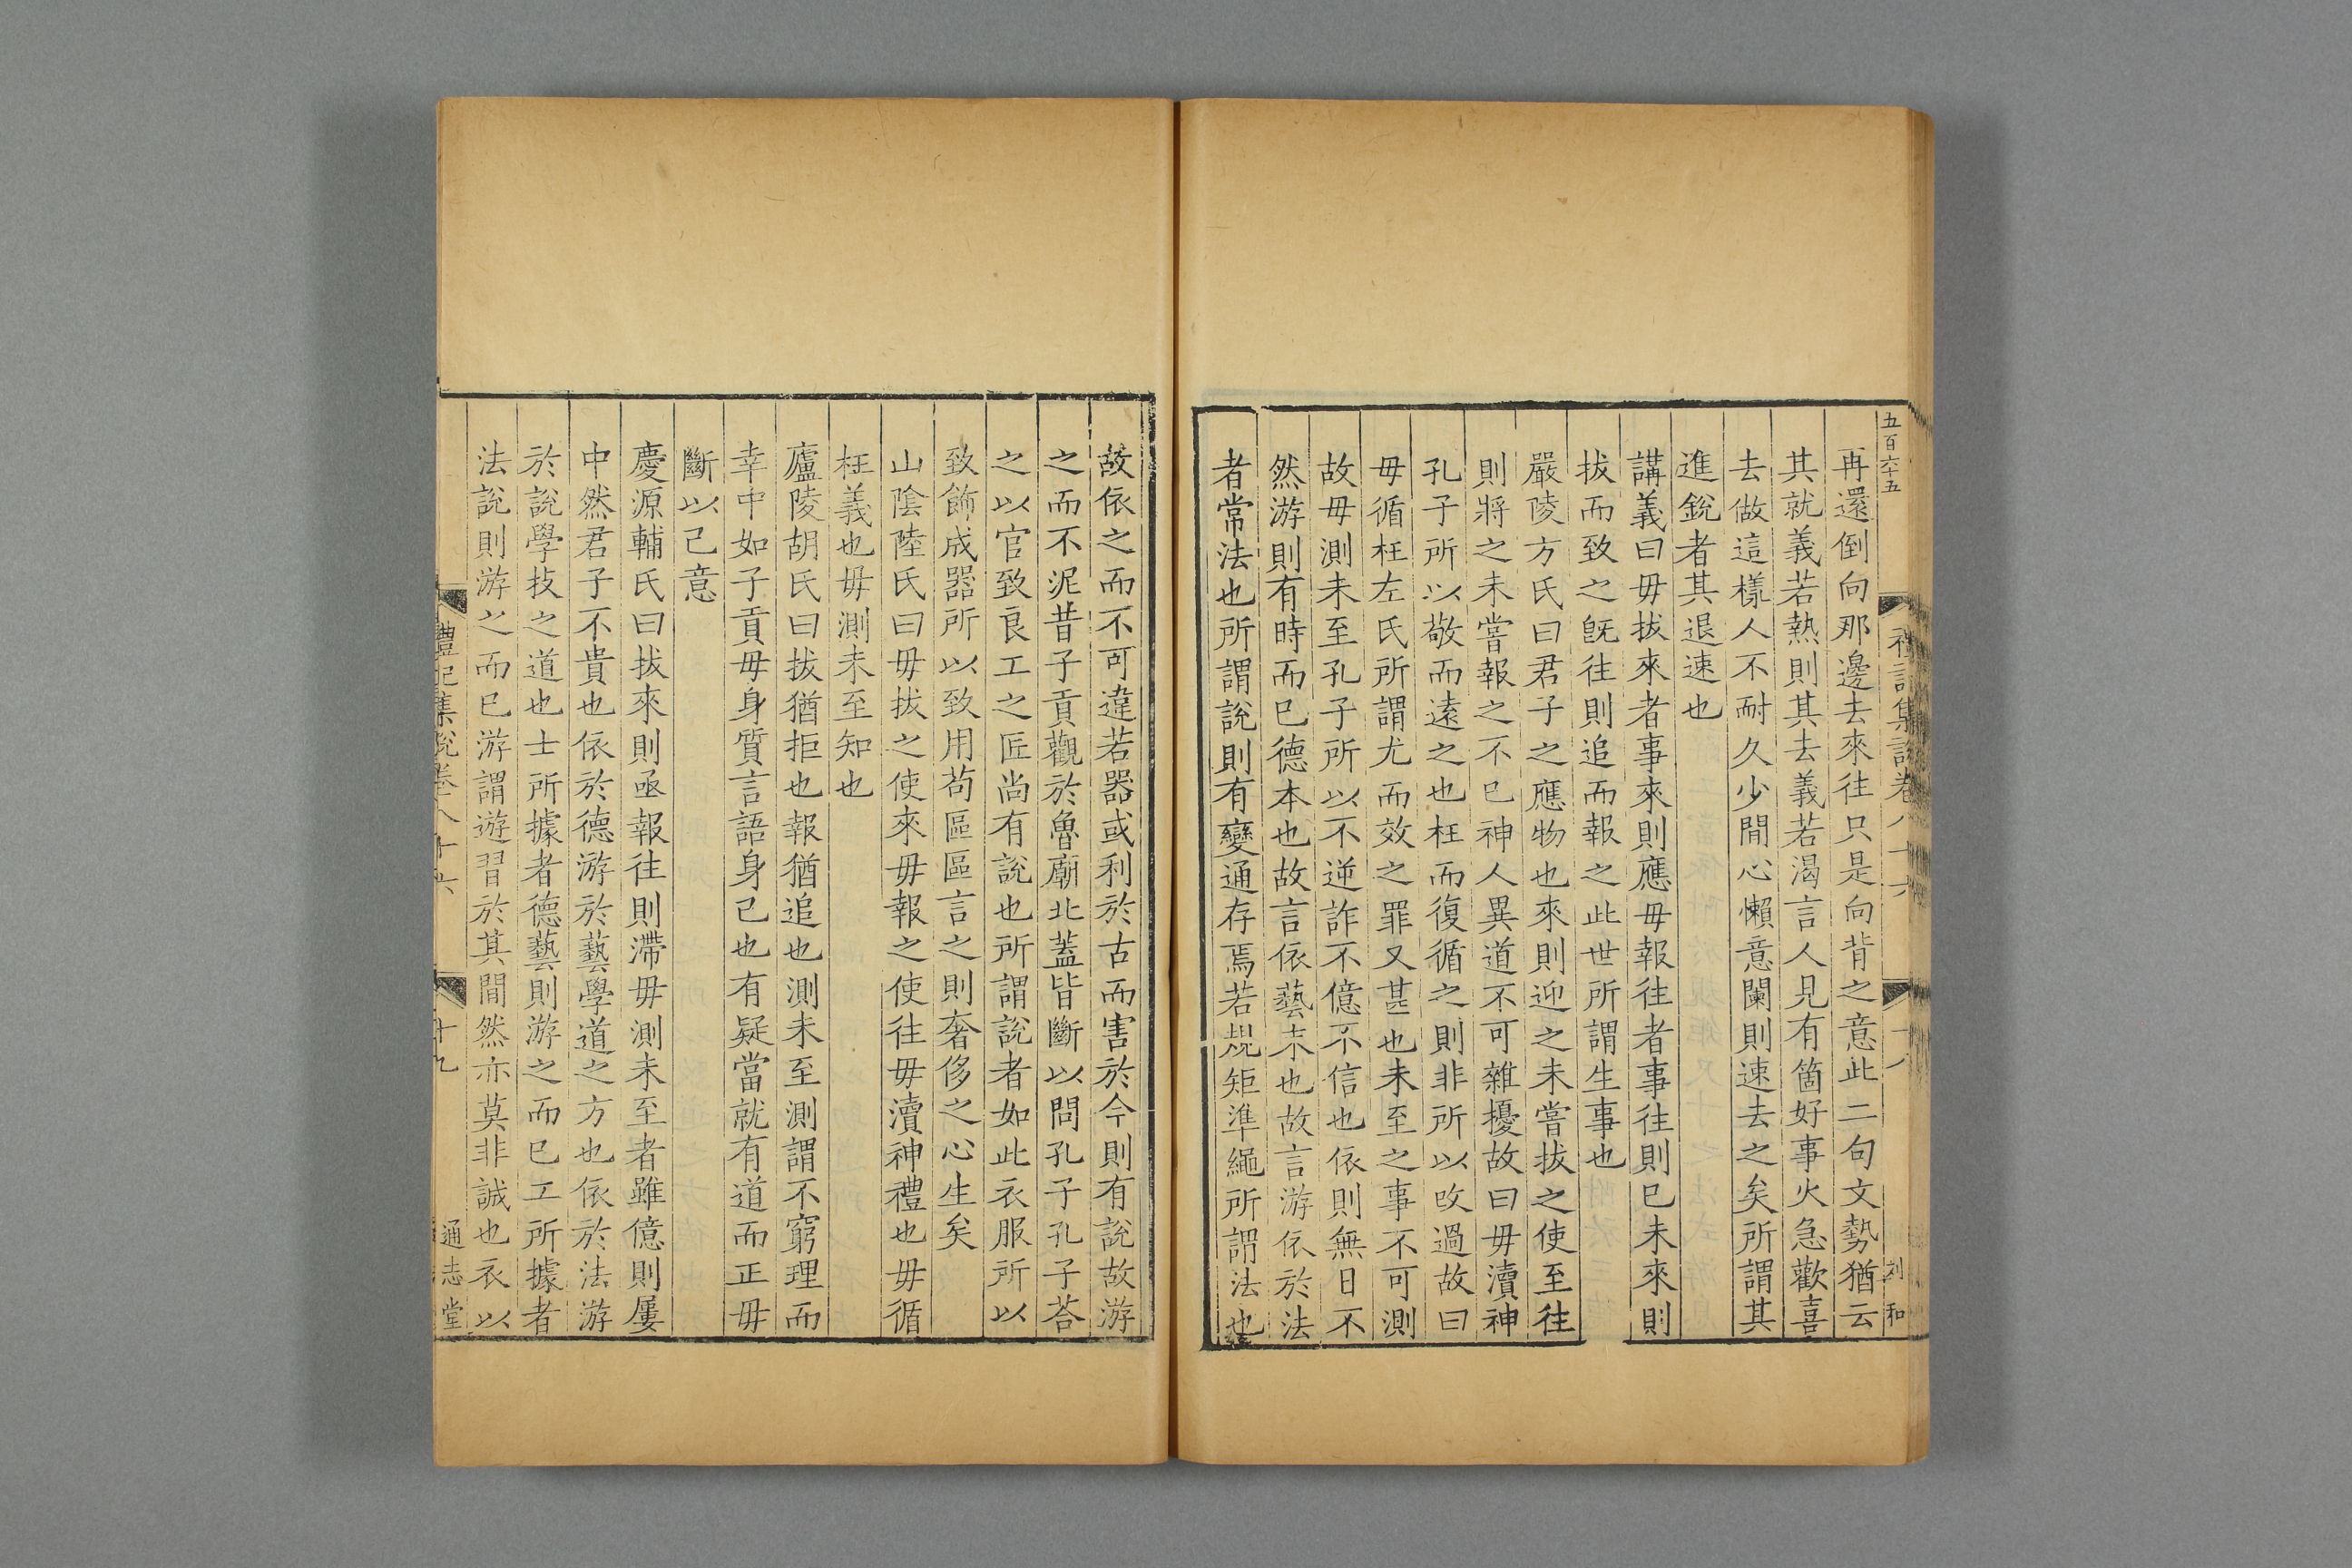 五百六十五
禮記集說卷八十六
十八
再還倒向那邊去來往只是向背之意此二句文勢猶云
其就義若熱則其去義若渴言人見有箇好事火急歡喜
去做這樣人不耐久少間心懶意闌則速去之矣所謂其
進銳者其退速也
講義曰毋拔來者事來則應毋報往者事往則已未來則
拔而致之旣往則追而報之此世所謂生事也
嚴陵方氏曰君子之應物也來則迎之未嘗拔之使至往
則將之未嘗報之不已神人異道不可雜擾故曰毋瀆神
孔子所以敬而遠之也枉而復循之則非所以改過故曰
毋循枉左氏所謂尤而效之罪又甚也未至之事不可測
故毋測未至孔子所以不逆詐不億不信也依則無日不
然游則有時而已德本也故言依藝末也故言游依於法
者常法也所謂說則有變通存焉若規矩準繩所謂法也
故依之而不可違若器或利於古而害於今則有說故游
之而不泥昔子貢觀於魯廟北蓋皆斷以問孔子孔子荅
之以官致良工之匠尚有說也所謂說者如此衣服所以
致飾成器所以致用苟區區言之則奢侈之心生矣
山陰陸氏曰毋拔之使來毋報之使往毋瀆神禮也毋循
枉義也毋測未至知也
廬陵胡氏曰拔猶拒也報猶追也測未至測謂不窮理而
幸中如子貢毋身質言語身己也有疑當就有道而正毋
斷以己意
慶源輔氏曰拔來則亟報往則滯毋測未至者雖億則屢
中然君子不貴也依於德游於藝學道之方也依於法游
於說學技之道也士所據者德藝則游之而已工所據者
法說則游之而已游謂遊習於其間然亦莫非誠也衣以
禮記集說卷八十六
十九
通志堂